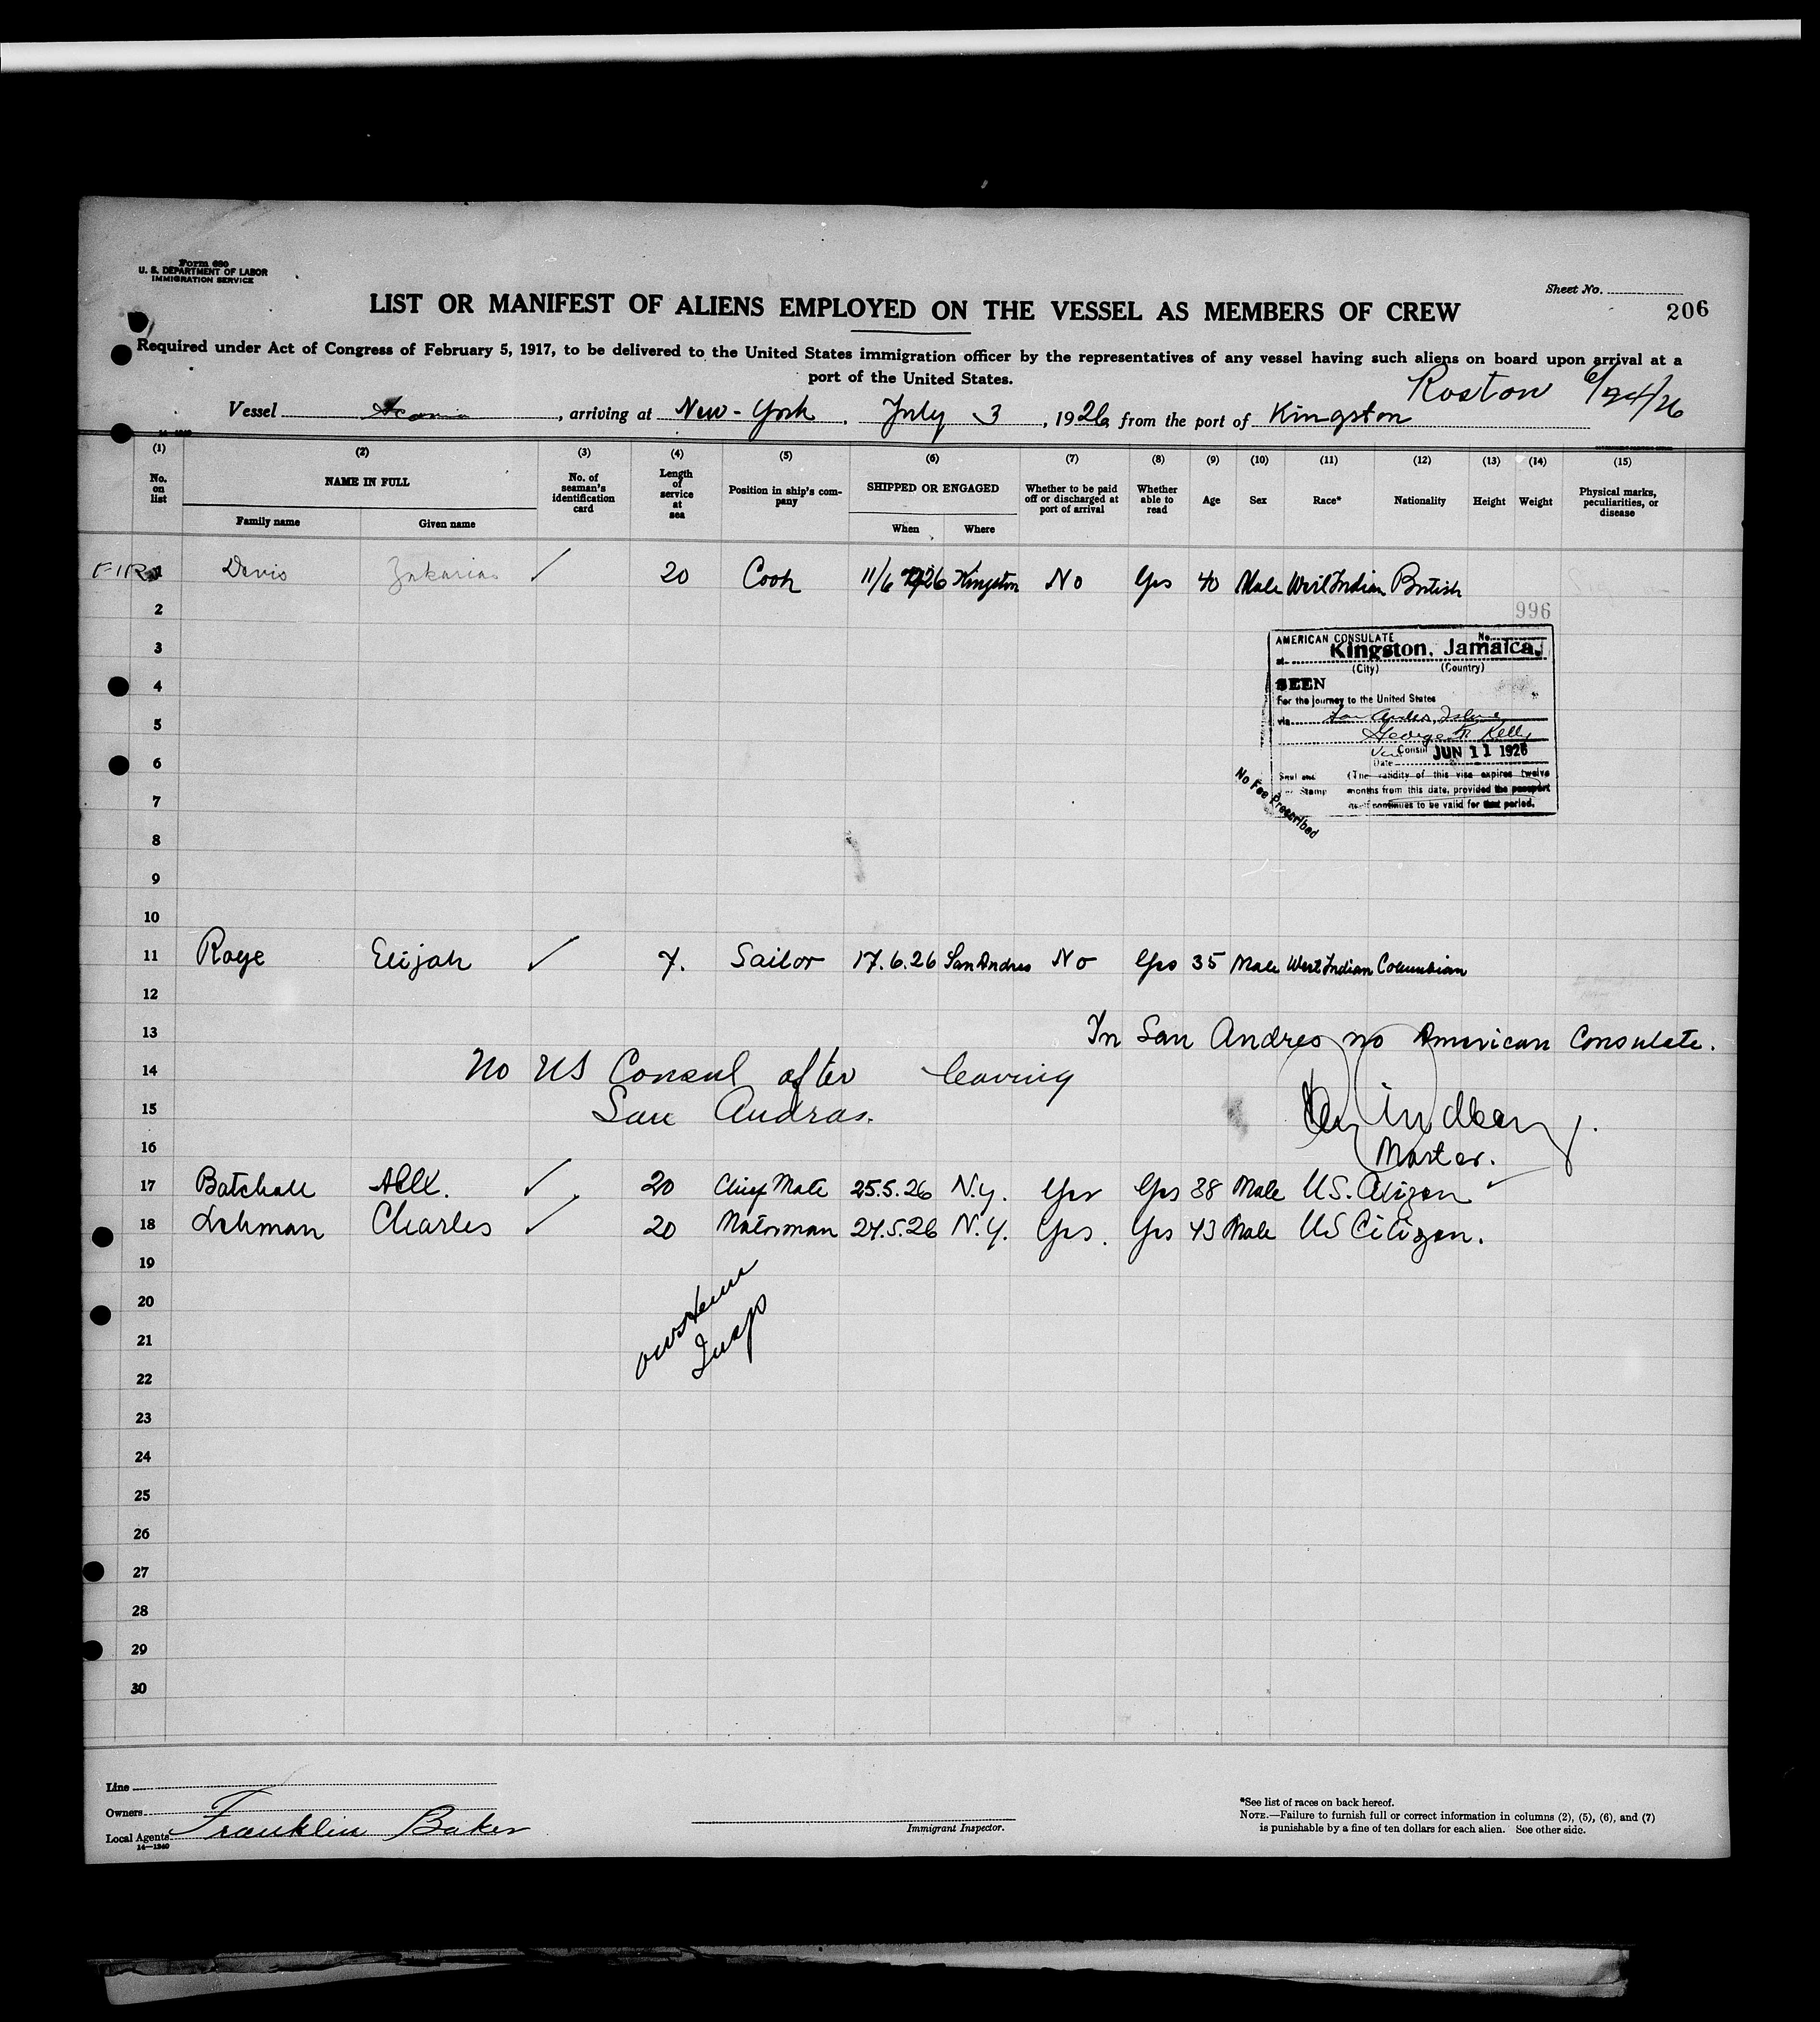 Form 680
U. S. DEPARTMENT OF LABOR
IMMIGRATION SERVICE
Sheet No.
206
LIST OR MANIFEST OF ALIENS EMPLOYED ON THE VESSEL AS MEMBERS OF CREW
Required under Act of Congress of February 5, 1917, to be delivered to the United States immigration officer by the representatives of any vessel having such aliens on board upon arrival at a
port of the United States.
6/24/26
Vessel , arriving at New-York, July 3, 1926, from the port of Kingston
(1) (2) (3) (4) (5) (6) (7) (8) (9) (10) (11) (12) (13) (14) (15)
No. on list NAME IN FULL No. of seaman's identification card Length of service at sea Position in ship's company SHIPPED OR ENGAGED Whether to be paid off or discharged at port of arrival Whether able to read Age Sex Race* Nationality Height Weight Physical marks, peculiarities, or disease
Family name Given name When Where
1 Davis Zakarias ✓ 20 Cook 11/6 26 Kingston No Yes 40 Male West Indian British
2
996
AMERICAN CONSULATE No.
3
at Kingston, Jamaica.
(City) (Country)
4
SEEN
For the journey to the United States
5
via San Andres, Island
George R. Kelly
Vice Consul JUN 11 1926
6
Date
Seal and (The validity of this visa expires twelve
Fee Stamp months from this date, provided the passport
7
itself continues to be valid for that period.
No Fee Prescribed
8
9
10
11 Raye Elijah ✓ 7. Sailor 17.6.26 San Andres No Yes 35 Male West Indian Columbian
12
13 In San Andres no American Consulate.
14 No US Consul after leaving
15 San Andras.
16 Master.
17 Batchall Alex. ✓ 20 Chief Mate 25.5.26 N.Y. Yes Yes 38 Male U.S. Citizen ✓
18 Lehman Charles ✓ 20 Motorman 27.5.26 N.Y. Yes. Yes 43 Male US Citizen.
19
20
21 Insp
22
23
24
25
26
27
28
29
30
Line
Owners
Local Agents Franklin Baker
14—1240
Immigrant Inspector.
*See list of races on back hereof.
NOTE.—Failure to furnish full or correct information in columns (2), (5), (6), and (7)
is punishable by a fine of ten dollars for each alien. See other side.